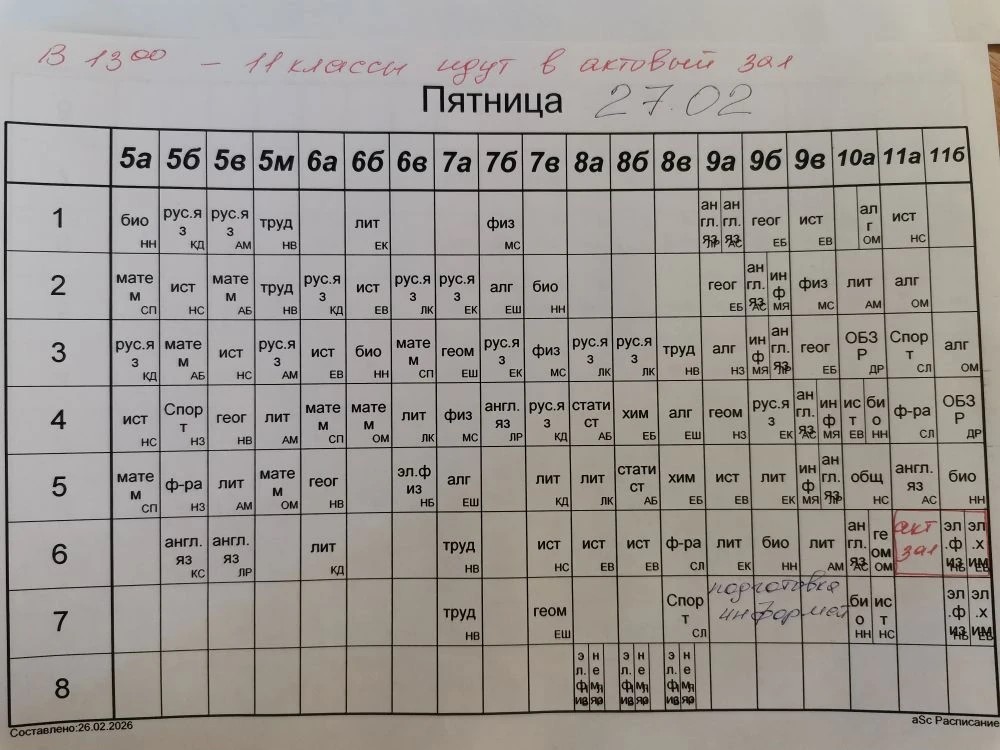 В 13 00 – 11 классы идут в актовый зал
Пятница 27.02
5а 5б 5в 5м 6а 6б 6в 7а 7б 7в 8а 8б 8в 9а 9б 9в 10а 11а 11б
1 био НН рус.яз КД рус.яз АМ труд НВ лит ЕК физ МС англ.яз ЛР англ.яз АС геог ЕБ ист ЕВ алг ОМ ист НС
2 матем СП ист НС матем АБ труд НВ рус.яз КД ист ЕВ рус.яз ЛК рус.яз ЕК алг ЕШ био НН геог ЕБ англ.яз АС инф МЯ физ МС лит АМ алг ОМ
3 рус.яз КД матем АБ ист НС рус.яз АМ ист ЕВ био НН матем СП геом ЕШ рус.яз ЕК физ МС рус.яз ЛК рус.яз ЛК труд НВ алг НЗ инф МЯ англ.яз ЛР геог ЕБ ОБЗР ДР Спорт СЛ алг ОМ
4 ист НС Спорт НЗ геог НВ лит АМ матем СП матем ОМ лит ЛК физ МС англ.яз ЛР рус.яз КД статист АБ хим ЕБ алг ЕШ геом НЗ рус.яз ЕК англ.яз АС инф МЯ ист ЕВ био НН ф-ра СЛ ОБЗР ДР
5 матем СП ф-ра НЗ лит АМ матем ОМ геог НВ эл.физ НБ алг ЕШ лит КД лит ЛК статист АБ хим ЕБ ист ЕВ лит ЕК инф МЯ англ.яз ЛР общ НС англ.яз АС био НН
6 англ.яз КС англ.яз ЛР лит КД труд НВ ист НС ист ЕВ ист ЕВ ф-ра СЛ лит ЕК био НН лит АМ англ.яз АС геом ОМ акт зал эл.физ НБ эл.хим ЕБ
7 труд НВ геом ЕШ Спорт СЛ подготовка информат био НН ист НС эл.физ НБ эл.хим ЕБ
8 эл.физ нем.яз эл.физ нем.яз эл.физ нем.яз
Составлено:26.02.2026 aSc Расписание